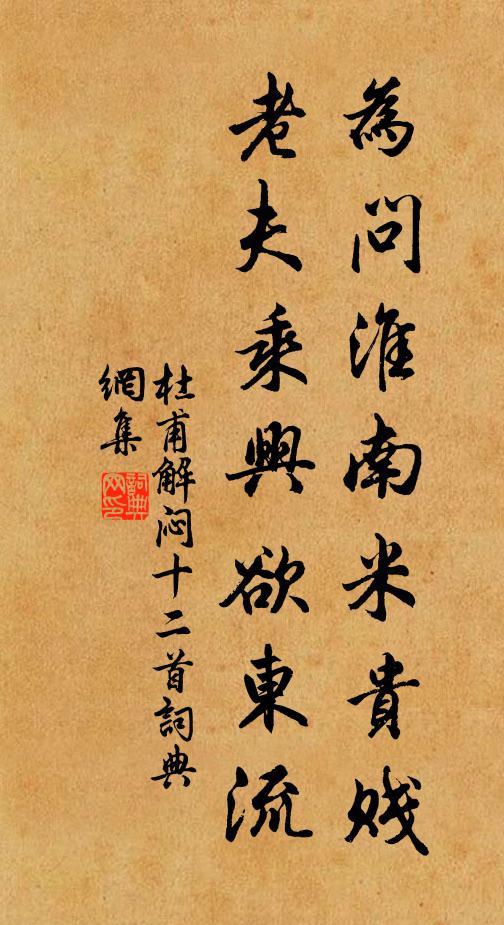 為問淮南米貴賤
老夫乘興欲東流
杜甫解悶十二首詞典
網集
詞典
网印